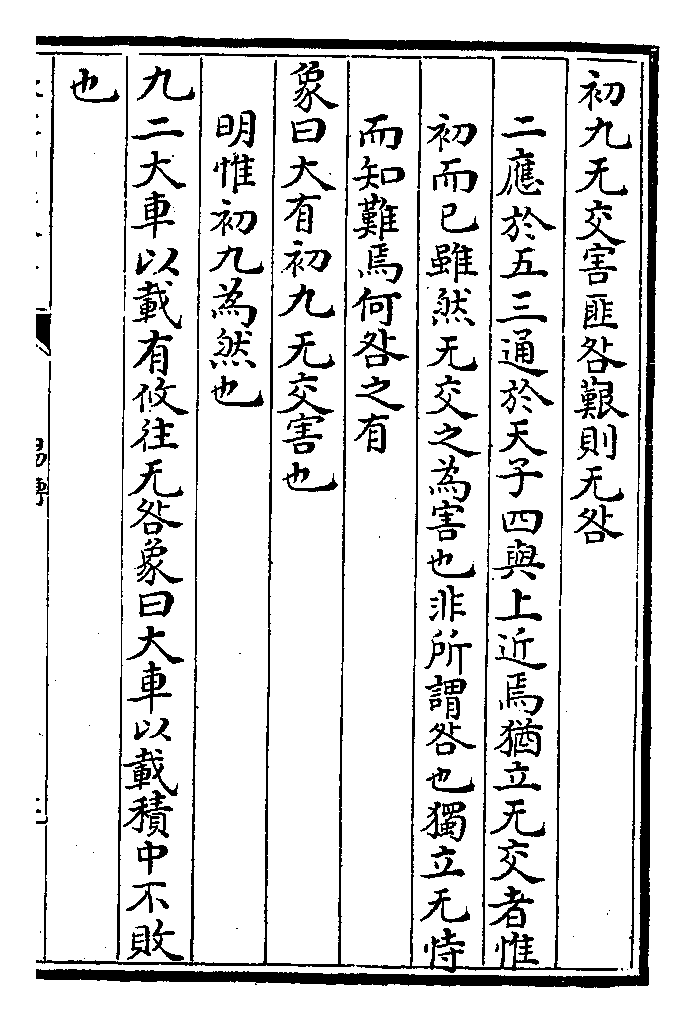 初九无交害匪咎艱則无咎
二應於五三通於天子四與上近焉猶立无交者惟
初而已雖然无交之為害也非所謂咎也獨立无恃
而知難焉何咎之有
象曰大有初九无交害也
明惟初九為然也
九二大車以載有攸往无咎象曰大車以載積中不敗
也
易傳